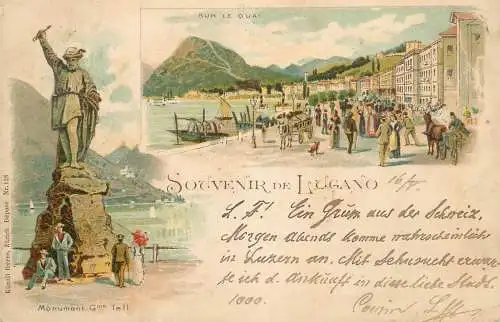 SUR LE QUAI
SOUVENIR DE LUGANO
16/V.
L. F! Ein Gruss aus der Schweiz.
Morgen abends komme wahrscheinlich
in Luzern an. Mit Sehnsucht erwar-
te ich d. Ankunft in diese liebe Stadt.
1000.
Monument Gme Tell
Künzli Frères, Zürich Déposé Nr. 118